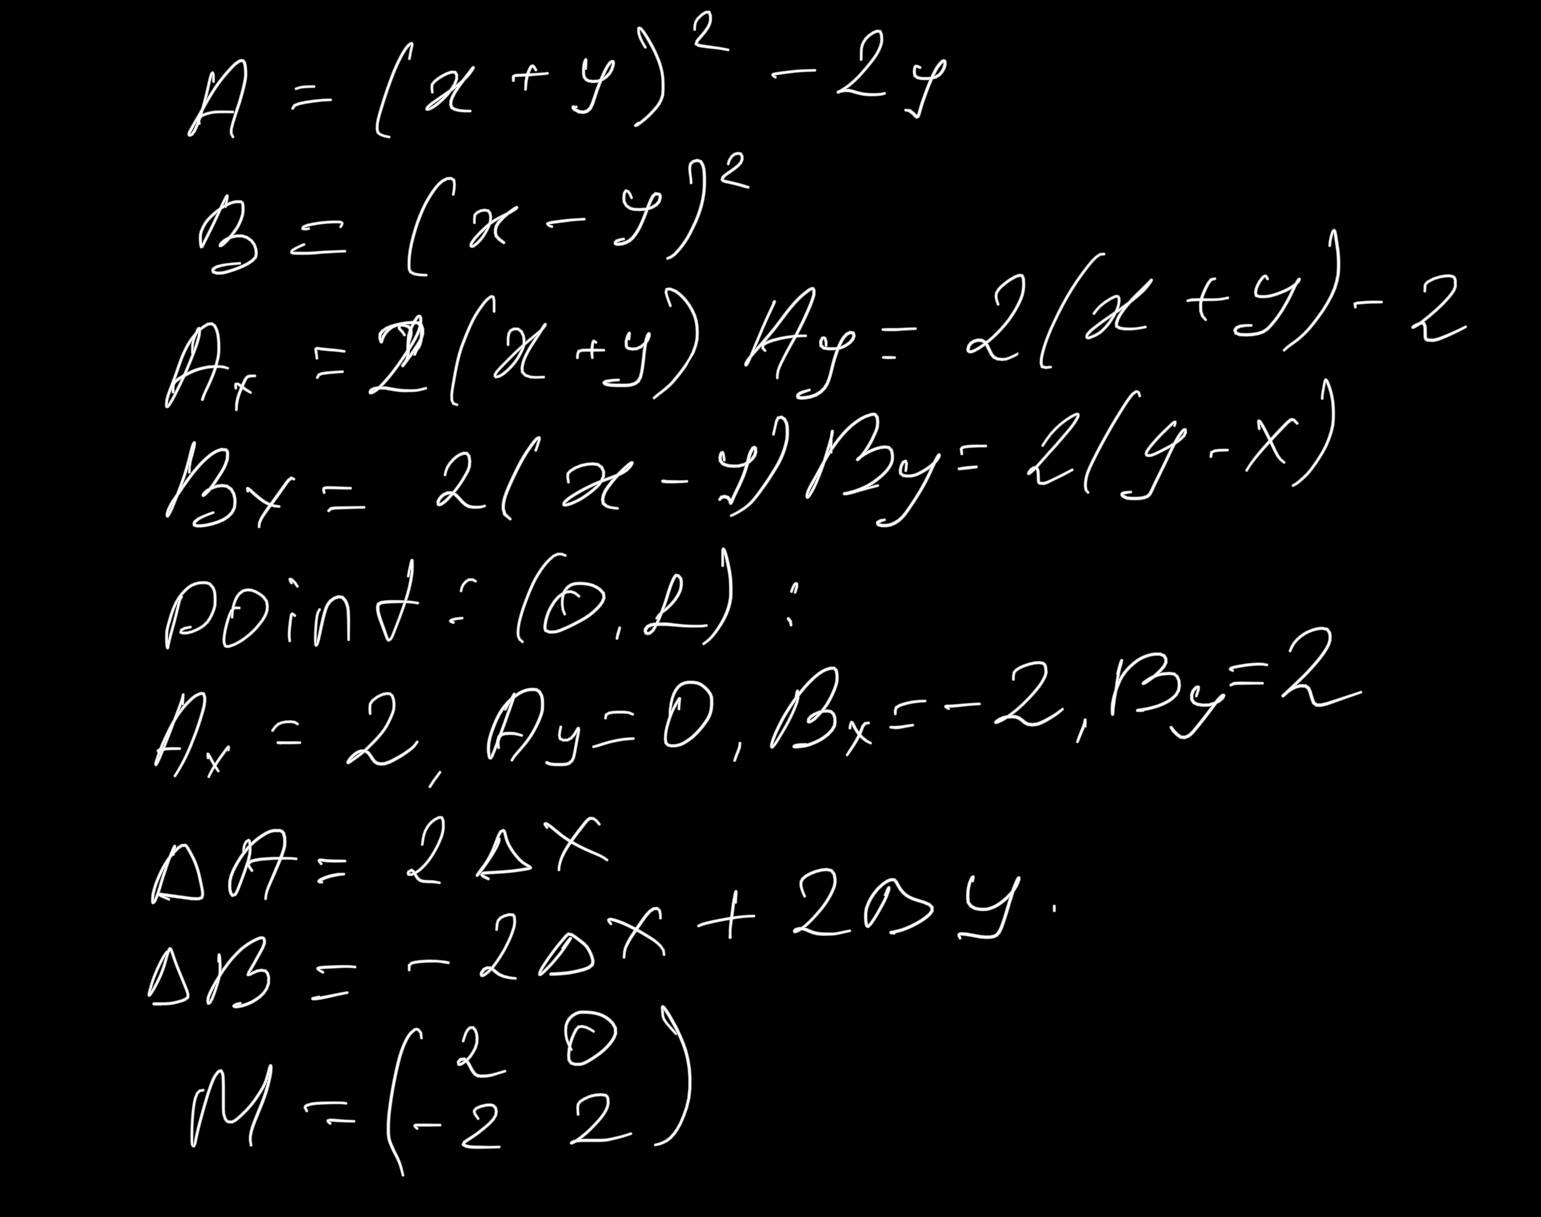 A = (x + y)² - 2y
B = (x - y)²
Aₓ = 2(x + y) Ay = 2(x + y) - 2
Bx = 2(x - y) By = 2(y - x)
point: (0, 1):
Aₓ = 2, Ay = 0, Bₓ = -2, By = 2
ΔA = 2Δx
ΔB = -2Δx + 2Δy.
M = (2 0
-2 2)